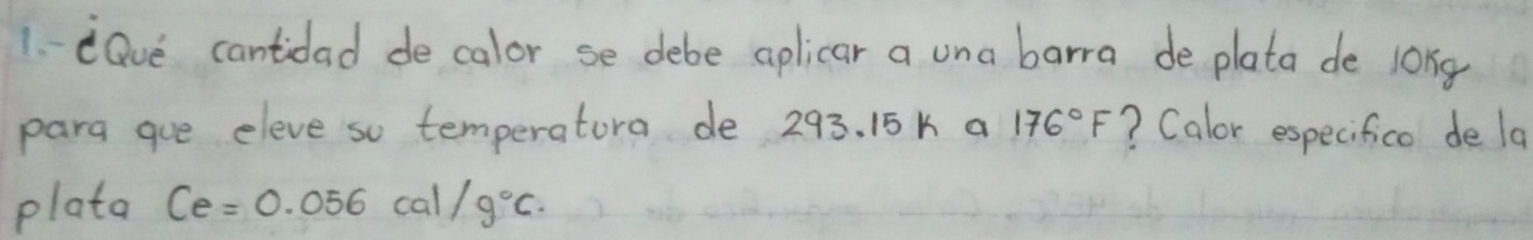 1.- ¿Qué cantidad de calor se debe aplicar a una barra de plata de 10Kg
para que eleve su temperatura de 293.15 K a 176°F? Calor especifico de la
plata Ce = 0.056 cal/g°C.